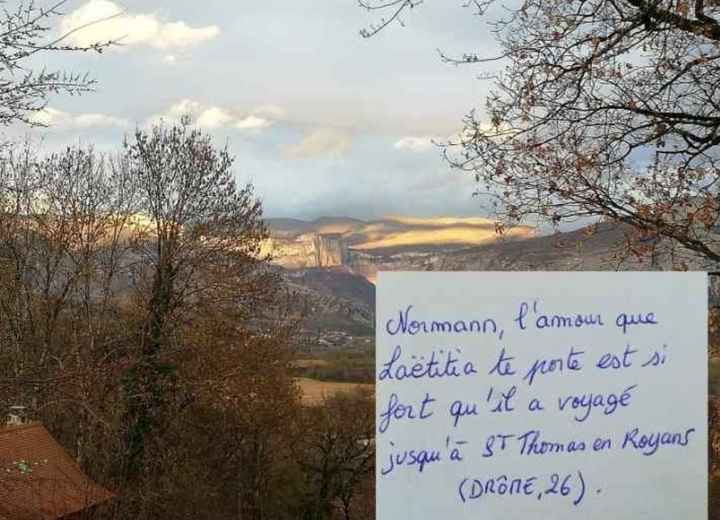 Normann, l'amour que
Laëtitia te porte est si
fort qu'il a voyagé
jusqu'à ST Thomas en Royans
(DRÔME, 26).